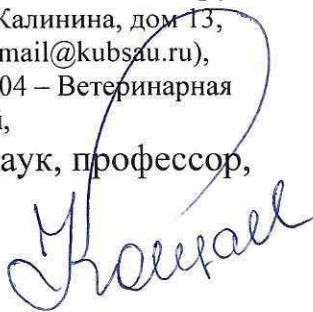 Калинина, дом 13,
mail@kubsau.ru),
04 – Ветеринарная
,
аук, профессор,